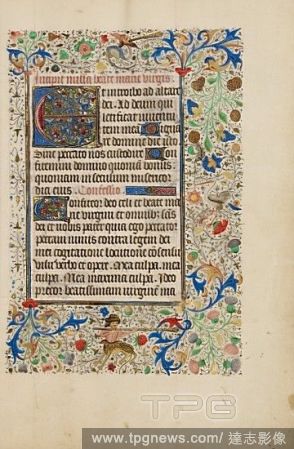 Incipit missa beate marie virgis
Et introibo ad altare
dei. Ad deum qui
letificat iuventu
tem mea Digna
re domine die isto
Sine peccato nos custodire Con
fitemini domino quoniam bonus
quoniam in seculum misericor
dia eius Confessio
Confiteor deo celi et beate ma
rie virgini et omnibus scis
eius et vobis pater quia ego peccator
peccavi nimis contra legem dei
mei cogitatione locutione consensu
visu verbo et opere. Mea culpa. mea
culpa. Mea maxima culpa. Ideo
precor beatissimam virgine ma
TPG
www.tpgnews.com / 達志影像